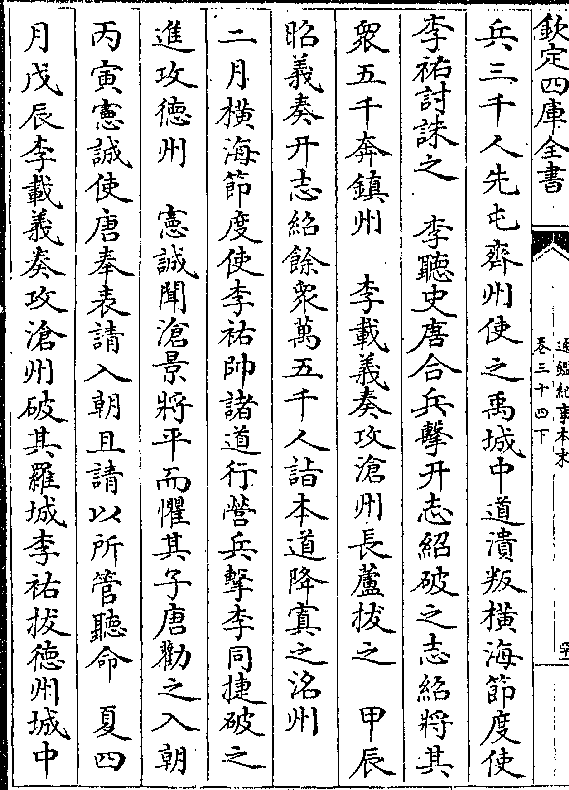 欽定四庫全書
通鑑紀事本末
卷三十四下
兵三千人先屯齊州使之禹城中道潰叛橫海節度使
李祐討誅之　李聽史唐合兵擊亓志紹破之志紹將其
衆五千奔鎮州　李載義奏攻滄州長蘆拔之　甲辰
昭義奏亓志紹餘衆萬五千人詣本道降寘之洺州
二月橫海節度使李祐帥諸道行營兵擊李同捷破之
進攻德州　憲誠聞滄景將平而懼其子唐勸之入朝
丙寅憲誠使唐奉表請入朝且請以所管聽命　夏四
月戊辰李載義奏攻滄州破其羅城李祐拔德州城中